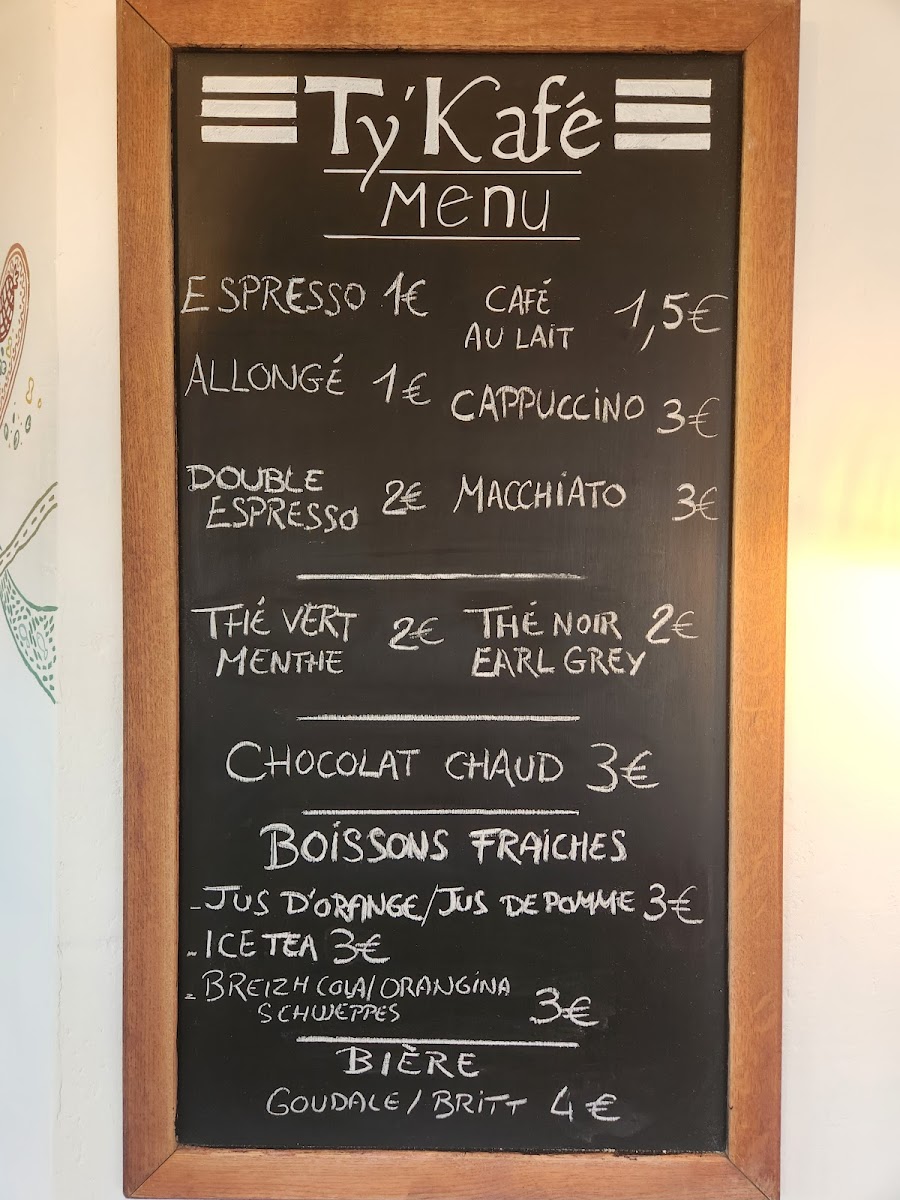 Ty'Kafé
Menu
ESPRESSO 1€
CAFÉ
AU LAIT 1,5€
ALLONGÉ 1€
CAPPUCCINO 3€
DOUBLE
ESPRESSO 2€
MACCHIATO 3€
THÉ VERT
MENTHE 2€
THÉ NOIR 2€
EARL GREY
CHOCOLAT CHAUD 3€
BOISSONS FRAICHES
- JUS D'ORANGE/JUS DE POMME 3€
- ICE TEA 3€
- BREIZH COLA/ORANGINA
SCHWEPPES 3€
BIÈRE
GOUDALE/BRITT 4€